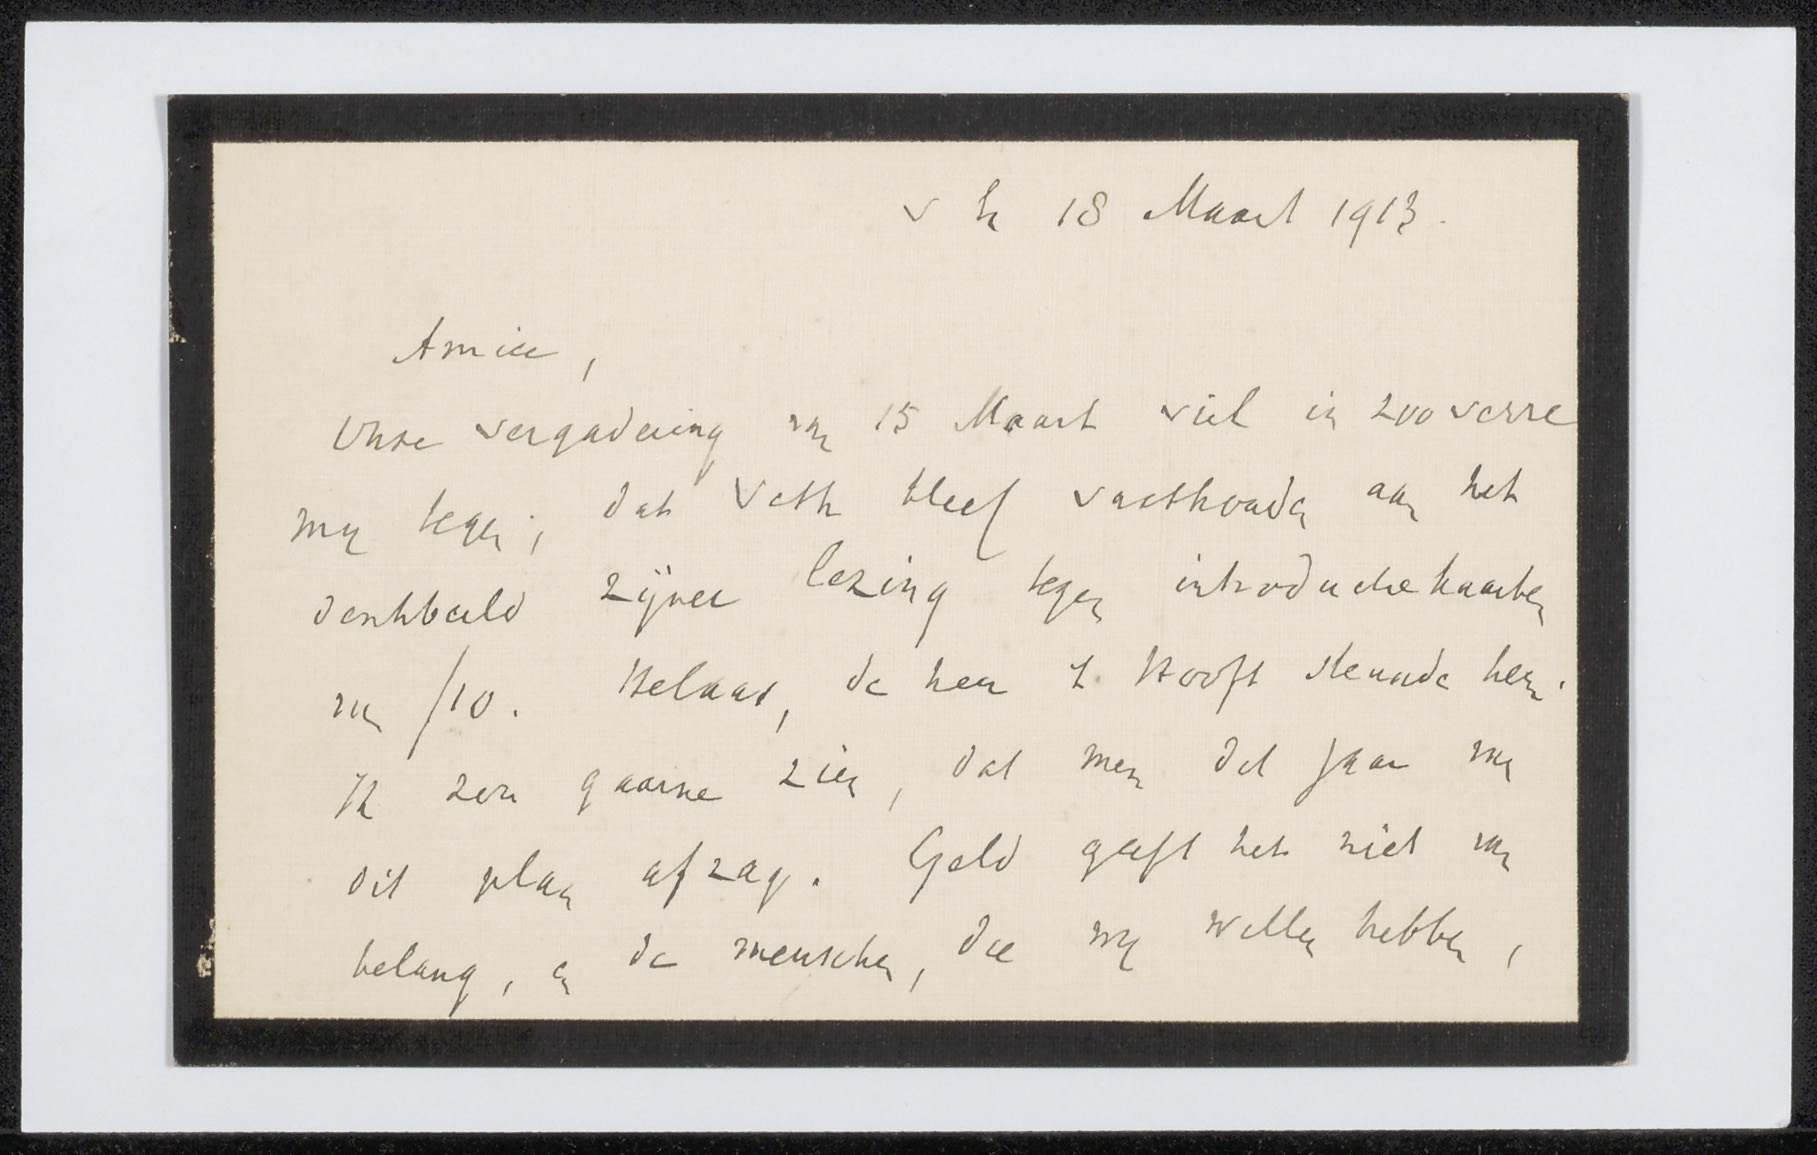 v h 18 Maart 1913.
Amice,
Onze vergadering van 15 Maart viel in zooverre
my tegen, dat Veth bleef vasthouden aan het
denkbeeld zijner lezing tegen introductiekaarten
van ƒ10. Helaas, de heer 't Hooft steunde hem.
Ik zou gaarne zien, dat men dit jaar van
dit plan afzag. Geld geeft het niet van
belang, en de menschen, die wy willen hebben,